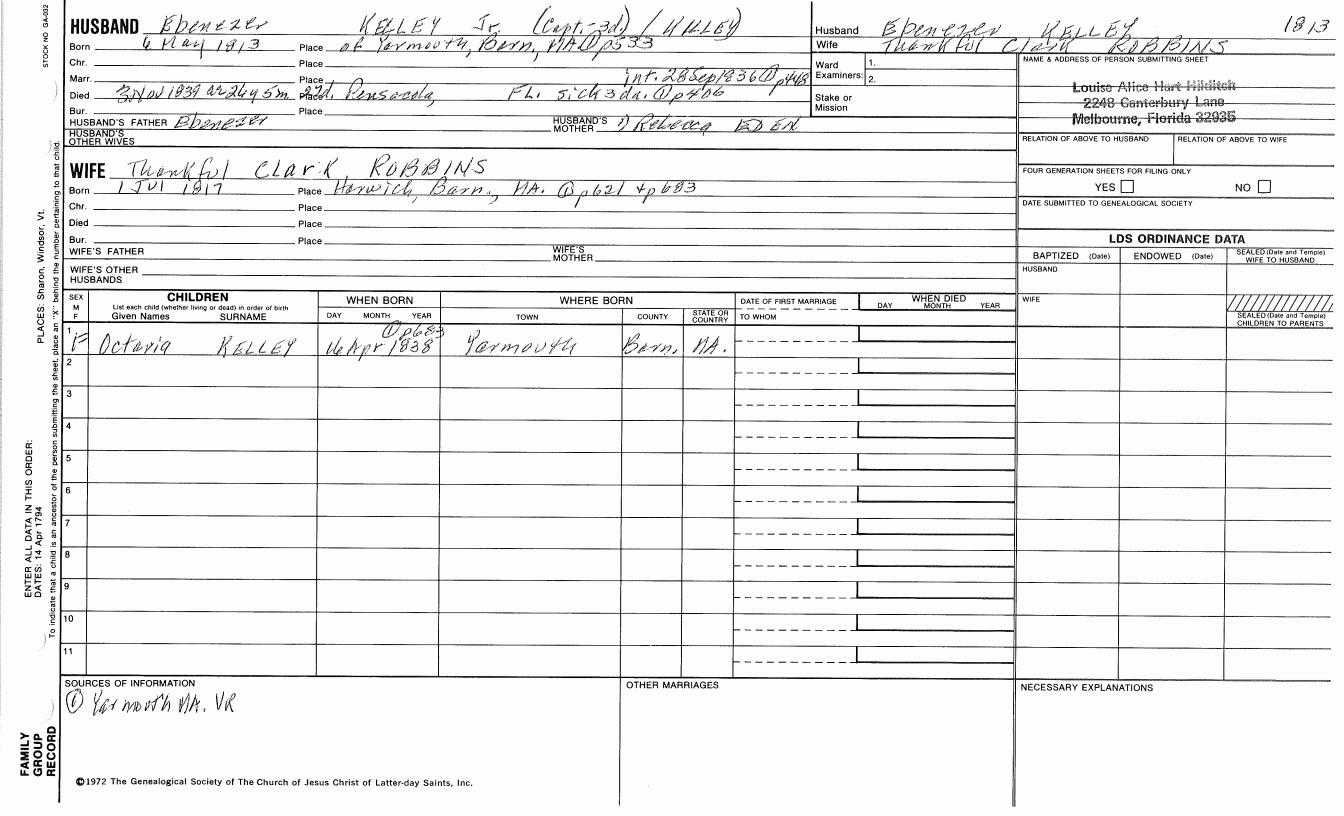 STOCK NO GA-032
HUSBAND Ebenezer KELLEY Jr. (Capt.-3d.) / KILLEY)
Born 6 May 1813 Place of Yarmouth, Barn, MA ① p533
Chr. Place
Marr. Place int. 28 Sep 1836 ① p448
Died 3 Nov 1839 ae 26y 5m 27d. Place Pensacola, FL. sick 3 da. ① p406
Bur. Place
HUSBAND'S FATHER Ebenezer HUSBAND'S MOTHER 1) Rebecca EDEN
HUSBAND'S OTHER WIVES
WIFE Thankful Clark ROBBINS
Born 1 Jul 1817 Place Harwich, Barn., MA. ① p621 + p683
Chr. Place
Died Place
Bur. Place
WIFE'S FATHER WIFE'S MOTHER
WIFE'S OTHER HUSBANDS
Husband Ebenezer KELLEY 1813
Wife Thankful Clark ROBBINS
Ward Examiners: 1. 2.
Stake or Mission
NAME & ADDRESS OF PERSON SUBMITTING SHEET
Louise Alice Hart Hilditch
2248 Canterbury Lane
Melbourne, Florida 32935
RELATION OF ABOVE TO HUSBAND RELATION OF ABOVE TO WIFE
FOUR GENERATION SHEETS FOR FILING ONLY
YES NO
DATE SUBMITTED TO GENEALOGICAL SOCIETY
LDS ORDINANCE DATA
BAPTIZED (Date) ENDOWED (Date) SEALED (Date and Temple) WIFE TO HUSBAND
HUSBAND
WIFE
SEALED (Date and Temple) CHILDREN TO PARENTS
SEX M F
CHILDREN
List each child (whether living or dead) in order of birth
Given Names SURNAME
WHEN BORN
DAY MONTH YEAR
WHERE BORN
TOWN COUNTY STATE OR COUNTRY
DATE OF FIRST MARRIAGE
TO WHOM
WHEN DIED
DAY MONTH YEAR
① p683
1 F Octavia KELLEY 16 Apr 1838 Yarmouth Barn. MA.
2
3
4
5
6
7
8
9
10
11
SOURCES OF INFORMATION
① Yarmouth MA. VR
OTHER MARRIAGES
NECESSARY EXPLANATIONS
©1972 The Genealogical Society of The Church of Jesus Christ of Latter-day Saints, Inc.
FAMILY GROUP RECORD
ENTER ALL DATA IN THIS ORDER:
DATES: 14 Apr 1794
PLACES: Sharon, Windsor, Vt.
To indicate that a child is an ancestor of the person submitting the sheet, place an "X" behind the number pertaining to that child.